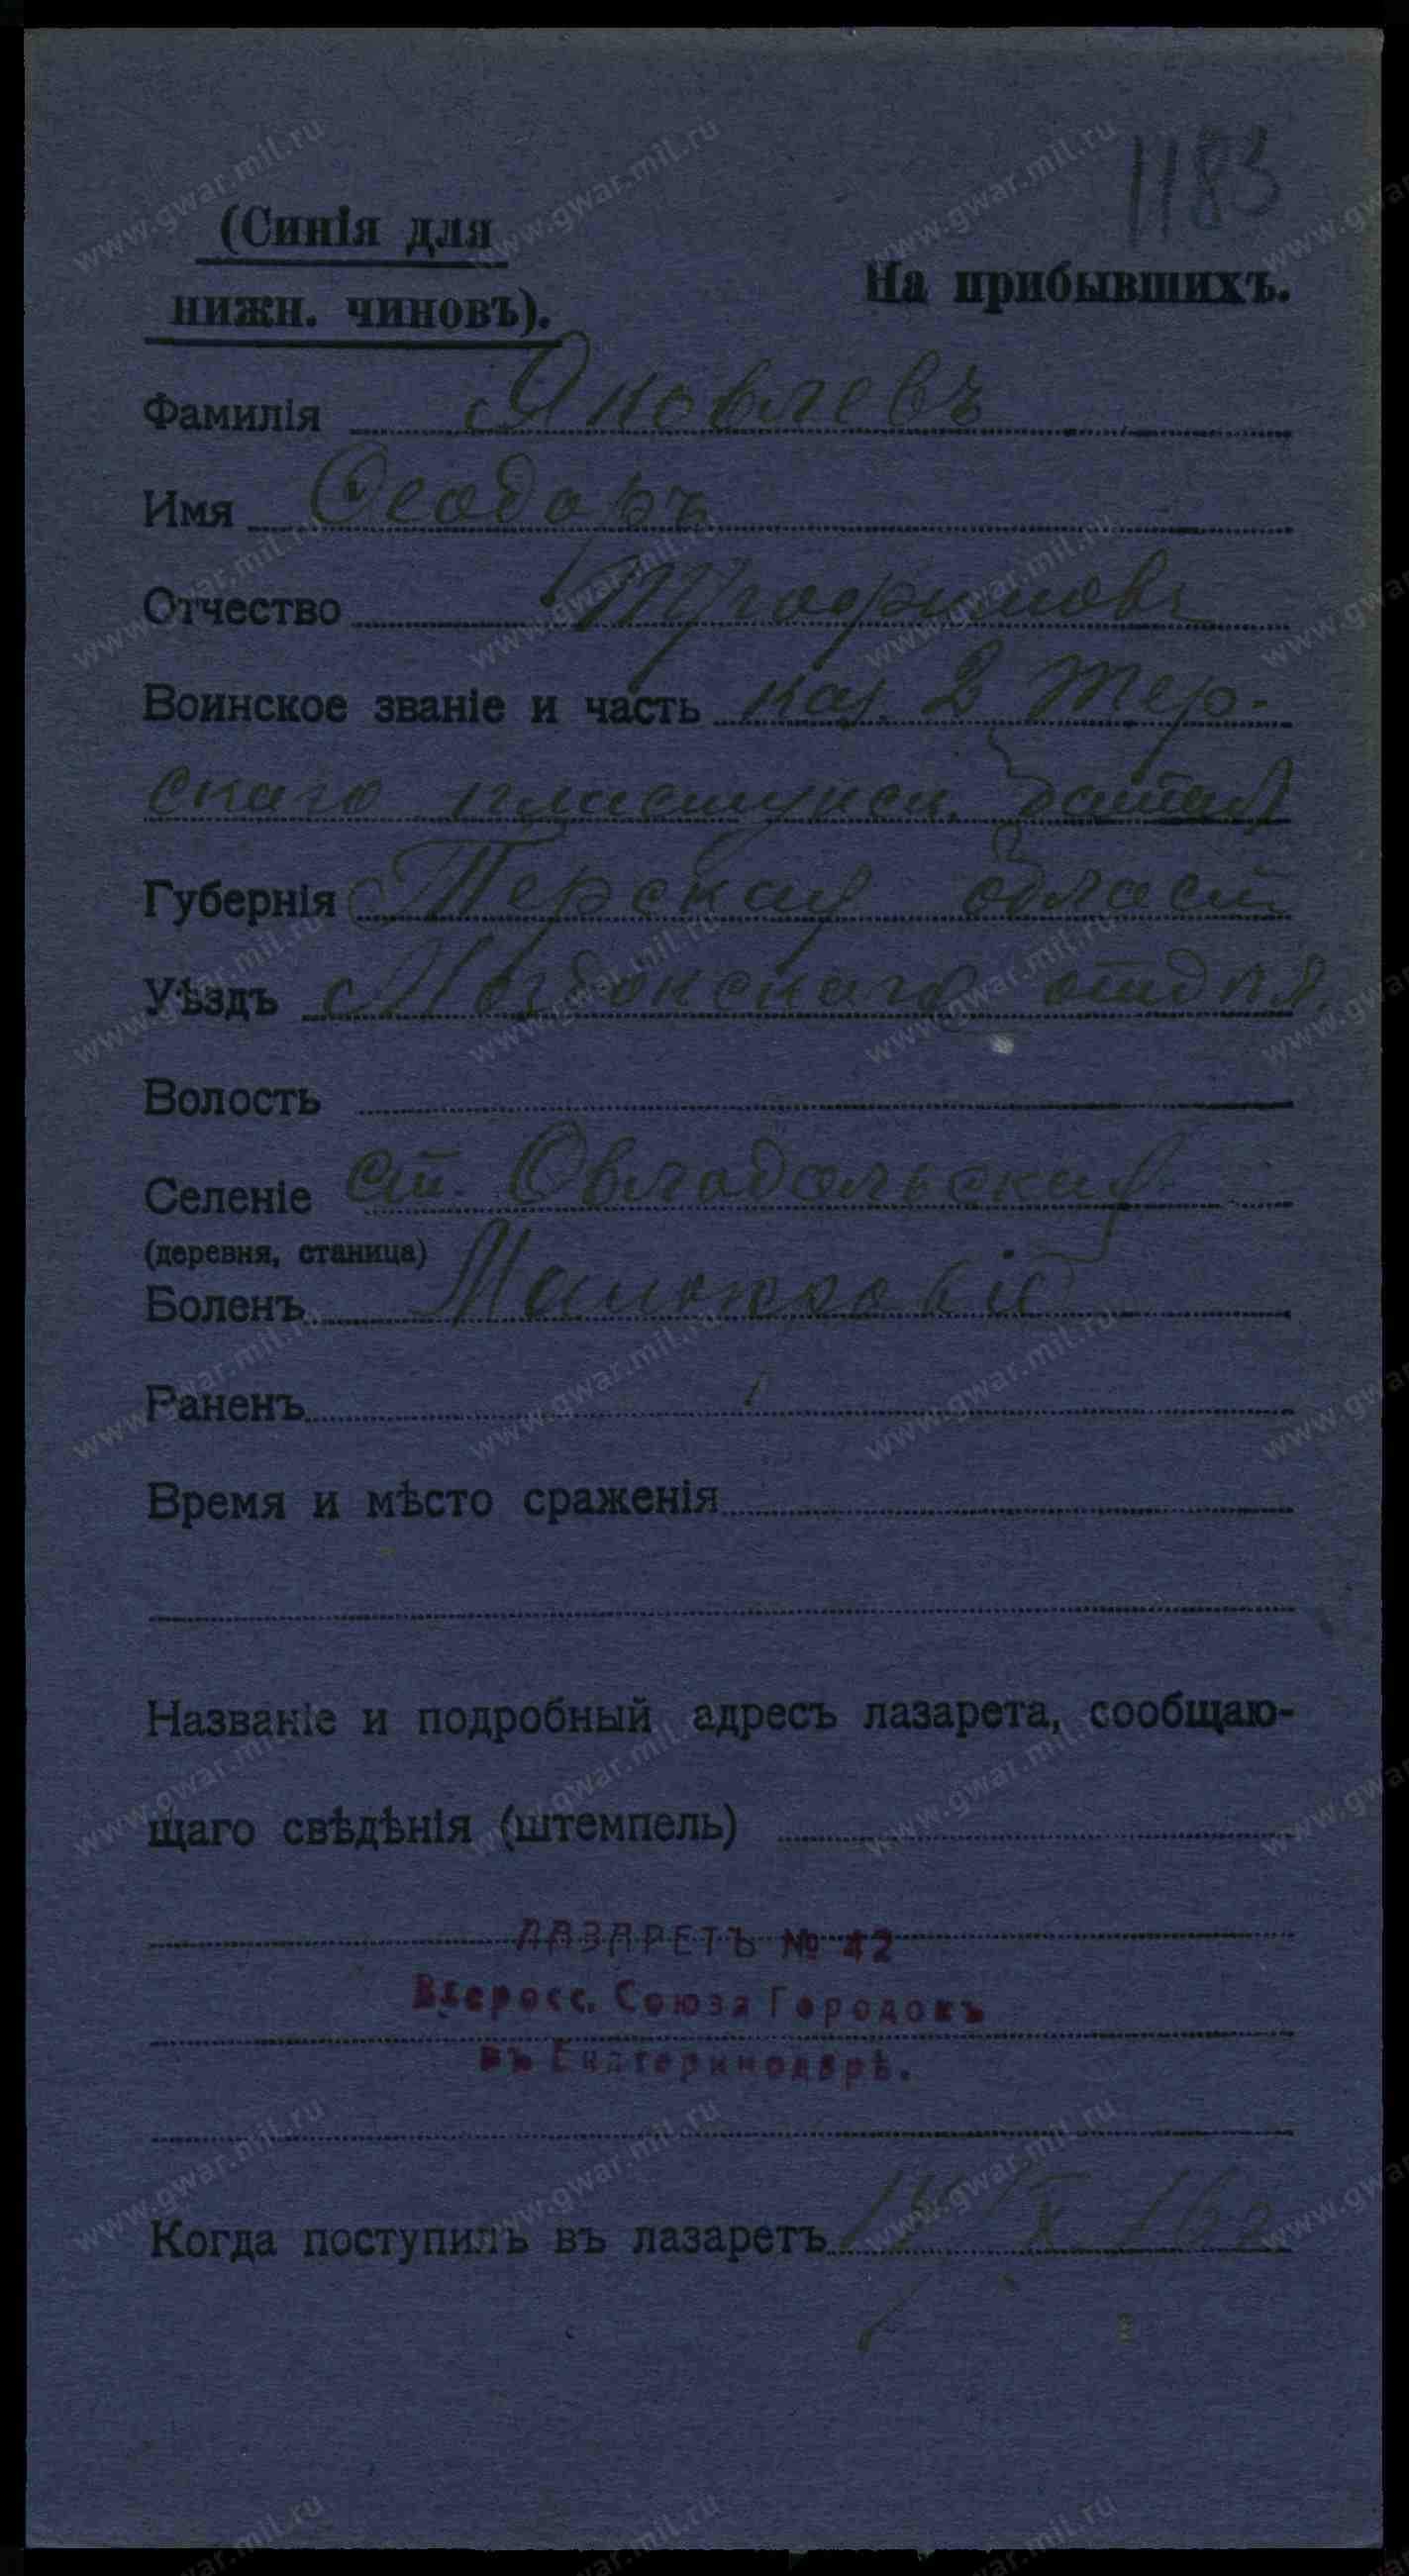 1183
(Синія для
нижн. чиновъ).
На прибывшихъ.
Фамилія Яковлевъ
Имя Ѳеодоръ
Отчество Трофимовъ
Воинское званіе и часть каз. 2 Тер-
скаго пластунск. батал
Губернія Терская област
Уѣздъ Моздокскаго отдѣл.
Волость
Селеніе ст.
(деревня, станица)
Боленъ Малокровіе
Раненъ
Время и мѣсто сраженія
Названіе и подробный адресъ лазарета, сообщаю-
щаго свѣдѣнія (штемпель)
ЛАЗАРЕТЪ № 42
Всеросс. Союза Городовъ
въ Екатеринодарѣ.
Когда поступилъ въ лазаретъ
www.gwar.mil.ru